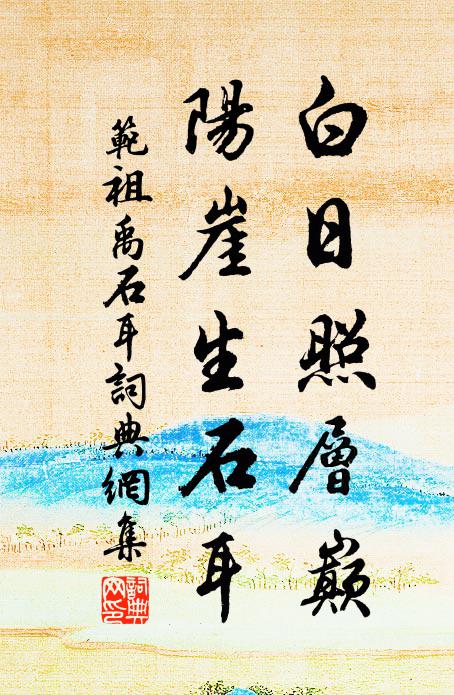 白日照層巔
陽崖生石耳
範祖禹石耳詞典網集
詞典网印